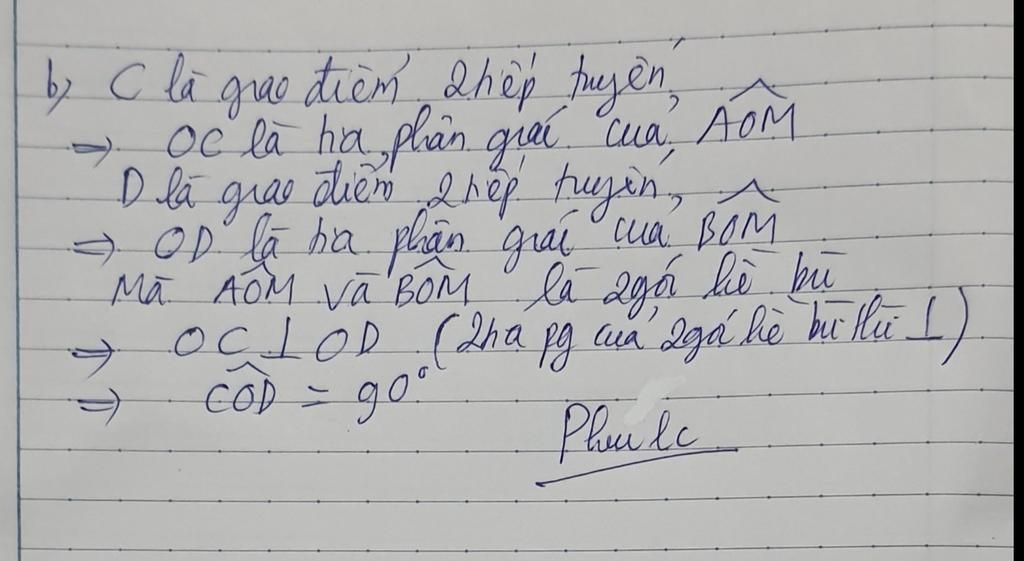 b) C là giao điểm 2 tiếp tuyến
=> OC là tia phân giác của AOM
D là giao điểm 2 tiếp tuyến
=> OD là tia phân giác của BOM
Mà AOM và BOM là 2 góc kề bù
=> OC ⊥ OD (2 tia pg của 2 góc kề bù thì ⊥)
=> COD = 90°